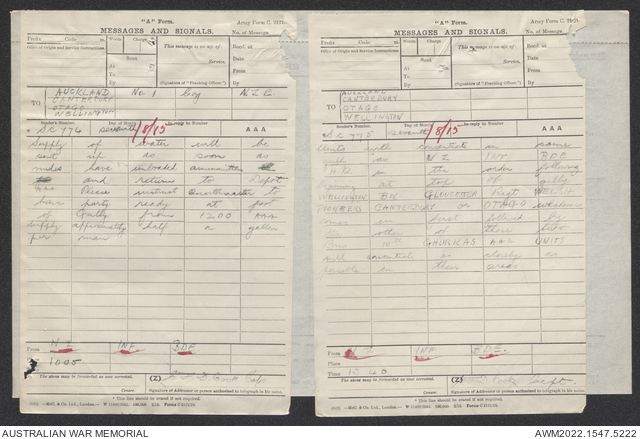 "A" Form.
Army Form C. 2121.
MESSAGES AND SIGNALS.
No. of Message
Prefix Code m. Words Charge
This message is on a/c of:
Recd. at m.
Office of Origin and Service Instructions.
Sent
Date
At m.
From
To
By
(Signature of "Franking Officer.")
By
TO
AUCKLAND No 1 Coy N.Z.E
CANTERBURY
OTAGO
WELLINGTON
Sender's Number. Day of Month In reply to Number AAA
SC 374 seventh 7/8/15
Supply of water will be
sent up as soon as
mules have unloaded ammunition
and return to Depot
AAA Please instruct Quartermaster to
have party ready at foot
of Gully from 1200 AAA
Supply approximately half a gallon
per man
From N Z INF BDE
Place
Time 1005
The above may be forwarded as now corrected. (Z)
Censor. Signature of Addressor or person authorised to telegraph in his name.
* This line should be erased if not required.
"A" Form.
Army Form C. 2121.
MESSAGES AND SIGNALS.
No. of Message
Prefix Code m. Words Charge
This message is on a/c of:
Recd. at m.
Office of Origin and Service Instructions.
Sent
Date
At m.
From
To
By
(Signature of "Franking Officer.")
By
TO
AUCKLAND
CANTERBURY
OTAGO
WELLINGTON
Sender's Number. Day of Month In reply to Number AAA
SC 375 seventh 7/8/15
Units will concentrate in same
gully as N Z INF BDE
HQ in the order following
running at top of gully
WELLINGTON BN GLOUCESTER Regt WELSH
PIONEERS CANTERBURY or OTAGO whichever
comes in first followed by
the other of these two
Bns 10th GHURKAS AAA UNITS
will concentrate as closely as
possible in their areas
From N Z INF BDE
Place
Time 1240
The above may be forwarded as now corrected. (Z)
Censor. Signature of Addressor or person authorised to telegraph in his name.
* This line should be erased if not required.
AUSTRALIAN WAR MEMORIAL
AWM2022.1547.5222